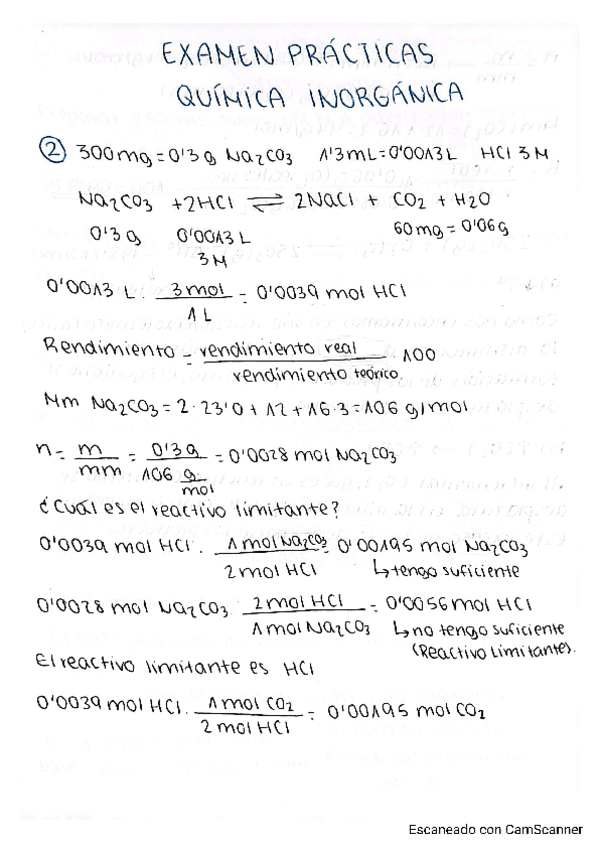 EXAMEN PRÁCTICAS
QUÍMICA INORGÁNICA
② 300mg = 0'3 g Na2CO3 1'3mL = 0'0013L HCl 3M
Na2CO3 + 2HCl ⇌ 2NaCl + CO2 + H2O
0'3 g 0'0013L 60mg = 0'06g
3M
0'0013 L · 3 mol / 1 L = 0'0039 mol HCl
Rendimiento = rendimiento real / rendimiento teórico · 100
Mm Na2CO3 = 2·23'0 + 12 + 16·3 = 106 g/mol
n = m / mm = 0'3 g / 106 g/mol = 0'0028 mol Na2CO3
¿Cuál es el reactivo limitante?
0'0039 mol HCl · 1 mol Na2CO3 / 2 mol HCl = 0'00195 mol Na2CO3
↳ tengo suficiente
0'0028 mol Na2CO3 · 2 mol HCl / 1 mol Na2CO3 = 0'0056 mol HCl
↳ no tengo suficiente
(Reactivo Limitante).
El reactivo limitante es HCl
0'0039 mol HCl · 1 mol CO2 / 2 mol HCl = 0'00195 mol CO2
Escaneado con CamScanner